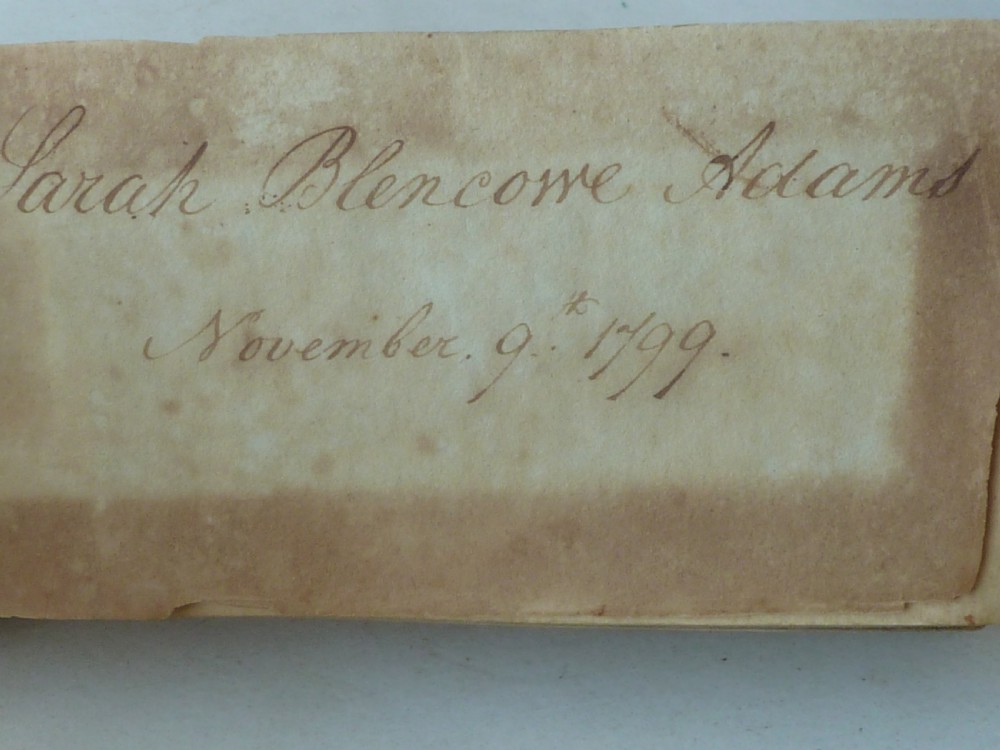 Sarah Blencowe Adams
November. 9th 1799.